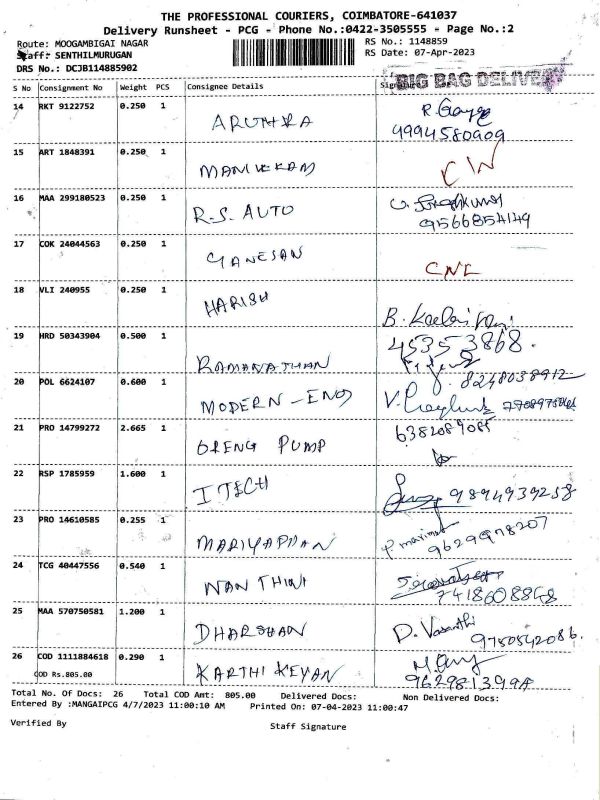 THE PROFESSIONAL COURIERS, COIMBATORE-641037
Delivery Runsheet - PCG - Phone No.:0422-3505555 - Page No.:2
Route: MOOGAMBIGAI NAGAR
RS No.: 1148859
Staff: SENTHILMURUGAN
RS Date: 07-Apr-2023
DRS No.: DCJB114885902
BIG BAG DELIVERY
S No Consignment No Weight PCS Consignee Details Signature
14 RKT 9122752 0.250 1 ARUTHRA
4994580909
15 ART 1848391 0.250 1 MANIKKAM
16 MAA 299180523 0.250 1 R.S. AUTO
9566854149
17 COK 24044563 0.250 1 GANESAN CNL
18 VLI 240955 0.250 1 HARISH
19 HRD 50343904 0.500 1 RAMANATHAN
45353868.
20 POL 6624107 0.600 1 MODERN-ENG 8248038912
21 PRO 14799272 2.665 1 ORENG PUMP 6382089085
22 RSP 1785959 1.600 1 ITECH 9894939258
23 PRO 14610585 0.255 1 MARIYAPPAN
9629978207
24 TCG 40447556 0.540 1 NANTHINI
7418608848
25 MAA 570750581 1.200 1 DHARSHAN D. Vasanthi
9750542086.
26 COD 1111884618 0.290 1 KARTHIKEYAN
COD Rs.805.00
Total No. Of Docs: 26 Total COD Amt: 805.00 Delivered Docs: Non Delivered Docs:
Entered By :MANGAIPCG 4/7/2023 11:00:10 AM Printed On: 07-04-2023 11:00:47
Verified By Staff Signature